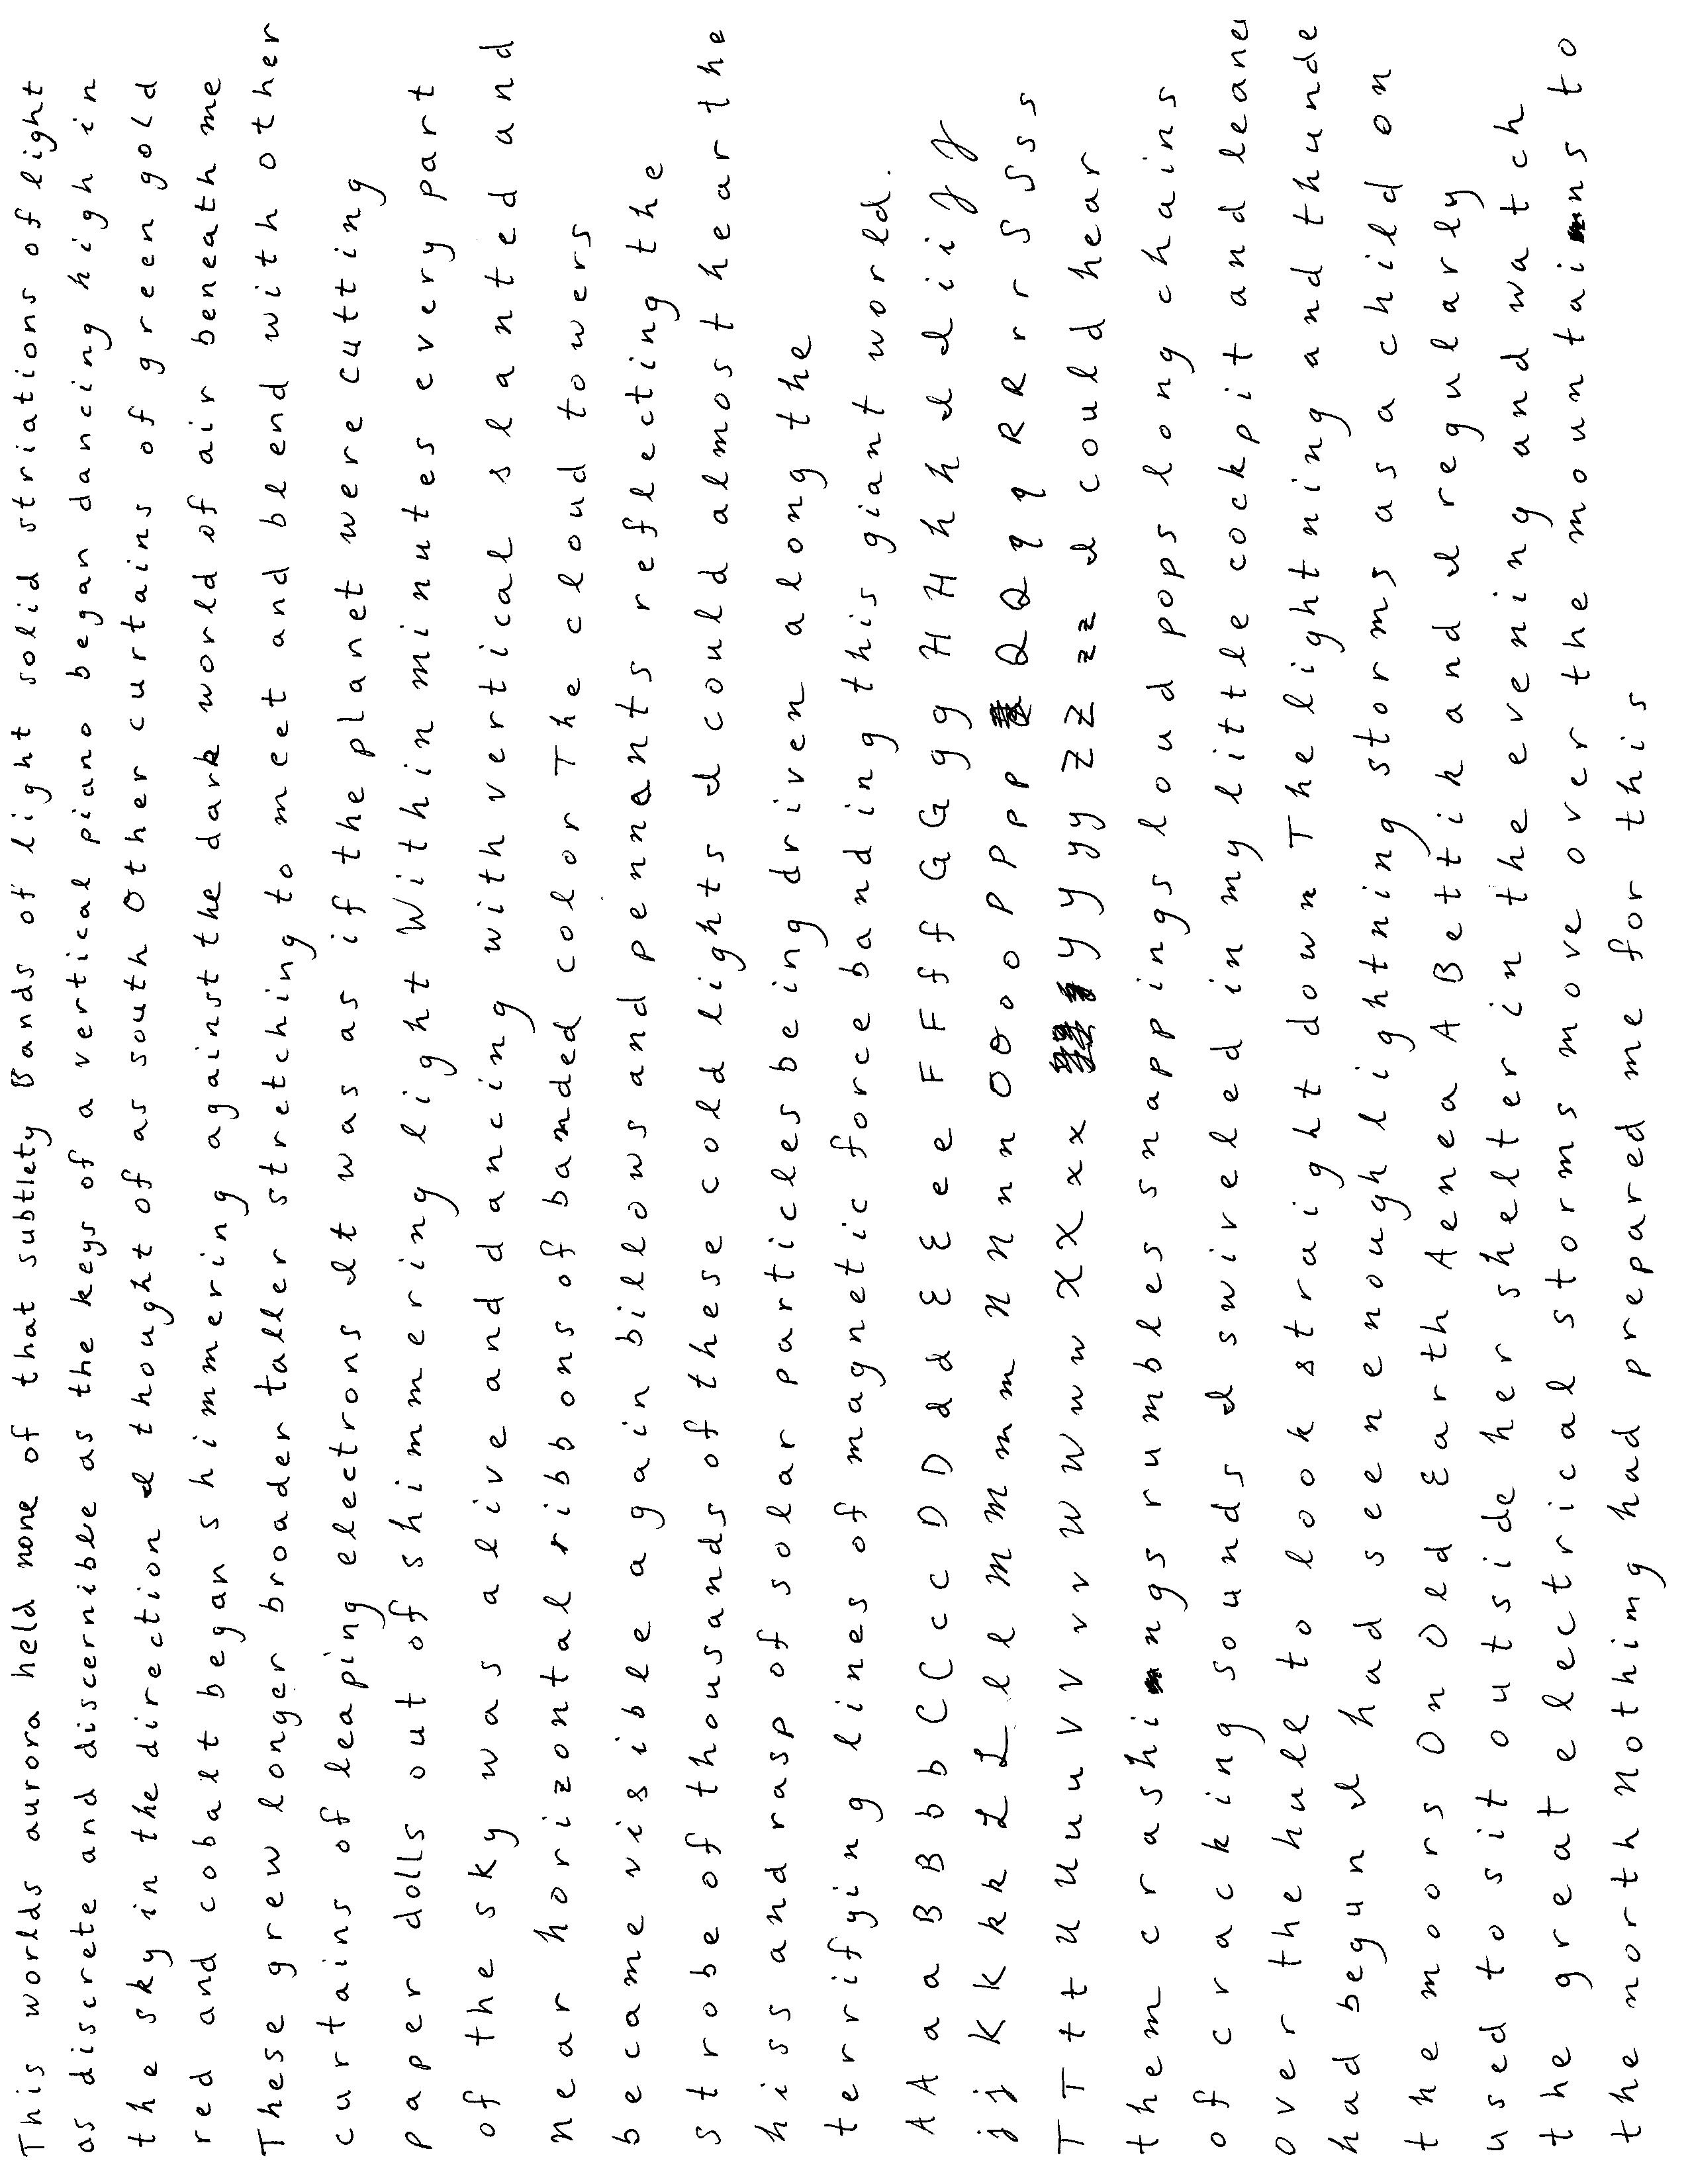 This worlds aurora held none of that subtlety Bands of light solid striations of light
as discrete and discernible as the keys of a vertical piano began dancing high in
the sky in the direction I thought of as south Other curtains of green gold
red and cobalt began shimmering against the dark world of air beneath me
These grew longer broader taller stretching to meet and blend with other
curtains of leaping electrons It was as if the planet were cutting
paper dolls out of shimmering light Within minutes every part
of the sky was alive and dancing with vertical slanted and
near horizontal ribbons of banded color The cloud towers
became visible again billows and pennants reflecting the
strobe of thousands of these cold lights I could almost hear the
hiss and rasp of solar particles being driven along the
terrifying lines of magnetic force banding this giant world.
A A a a B B b b C C c c D D d d E E e e F F f f G G g g H H h h I I i i J J
j j K K k k L L l l M M m m N N n n O O o o P P p p Q Q q q R R r r S S s s
T T t t U U u u V V v v W W w w X X x x Y Y y y Z Z z z I could hear
them crashings rumbles snappings loud pops long chains
of cracking sounds I swiveled in my little cockpit and leane
over the hull to look straight down The lightning and thunde
had begun I had seen enough lightning storms as a child on
the moors On Old Earth Aenea A Bettik and I regularly
used to sit outside her shelter in the evening and watch
the great electrical storms move over the mountains to
the north Nothing had prepared me for this